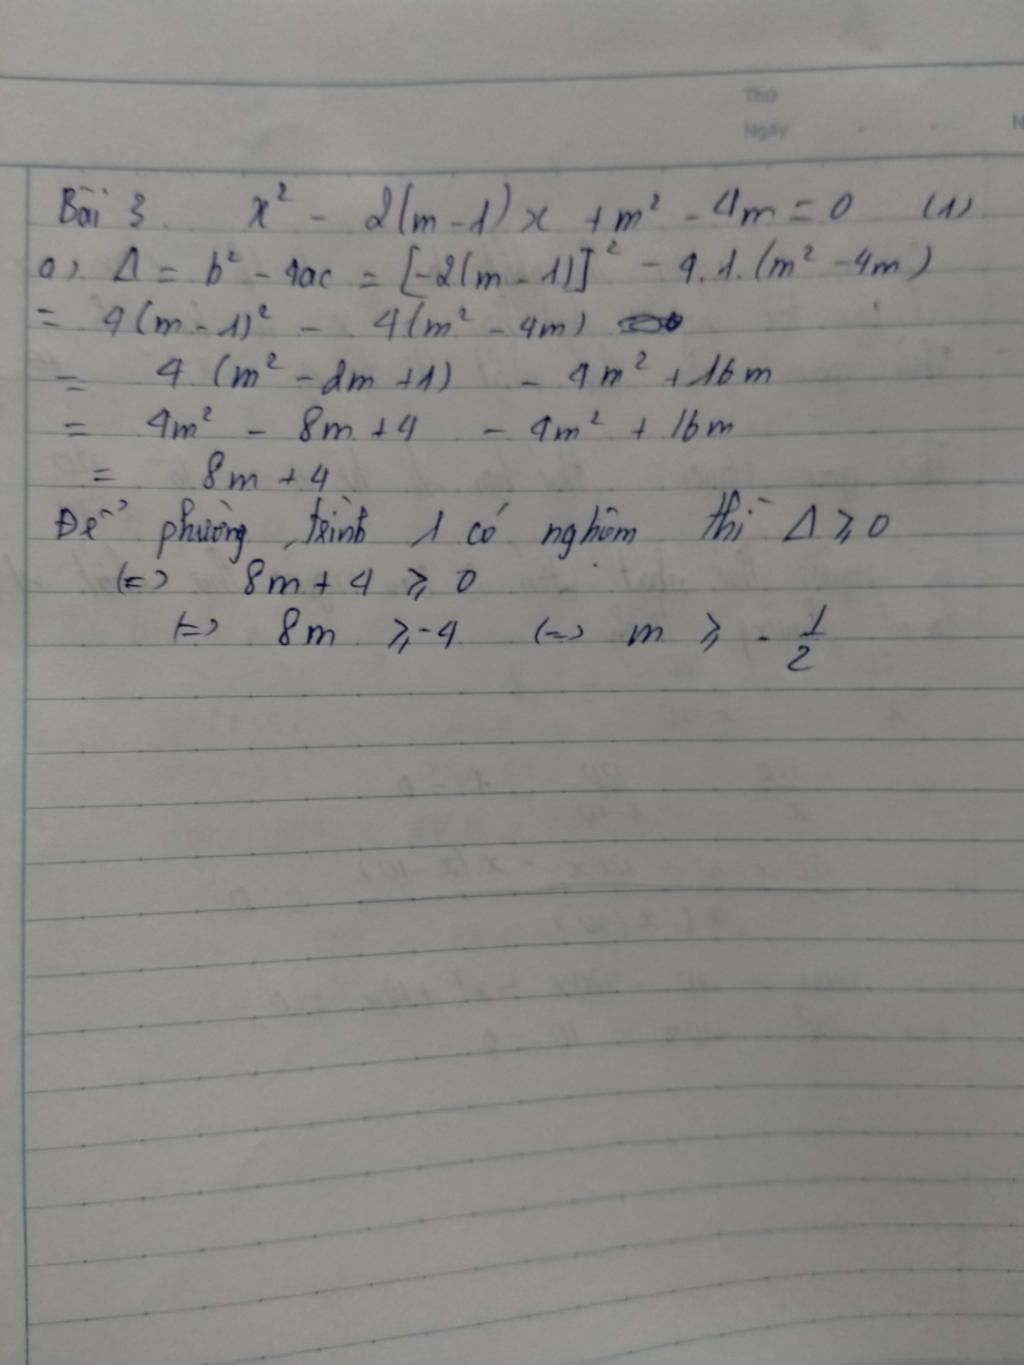 Thứ
Ngày
Bài 3. x² - 2(m-1)x + m² - 4m = 0 (1)
a) Δ = b² - 4ac = [-2(m-1)]² - 4.1.(m² - 4m)
= 4(m-1)² - 4(m² - 4m)
= 4 (m² - 2m + 1) - 4m² + 16m
= 4m² - 8m + 4 - 4m² + 16m
= 8m + 4
Để phương trình 1 có nghiệm thì Δ ⩾ 0
(=) 8m + 4 ⩾ 0
(=) 8m ⩾ -4 (=) m ⩾ - 1/2